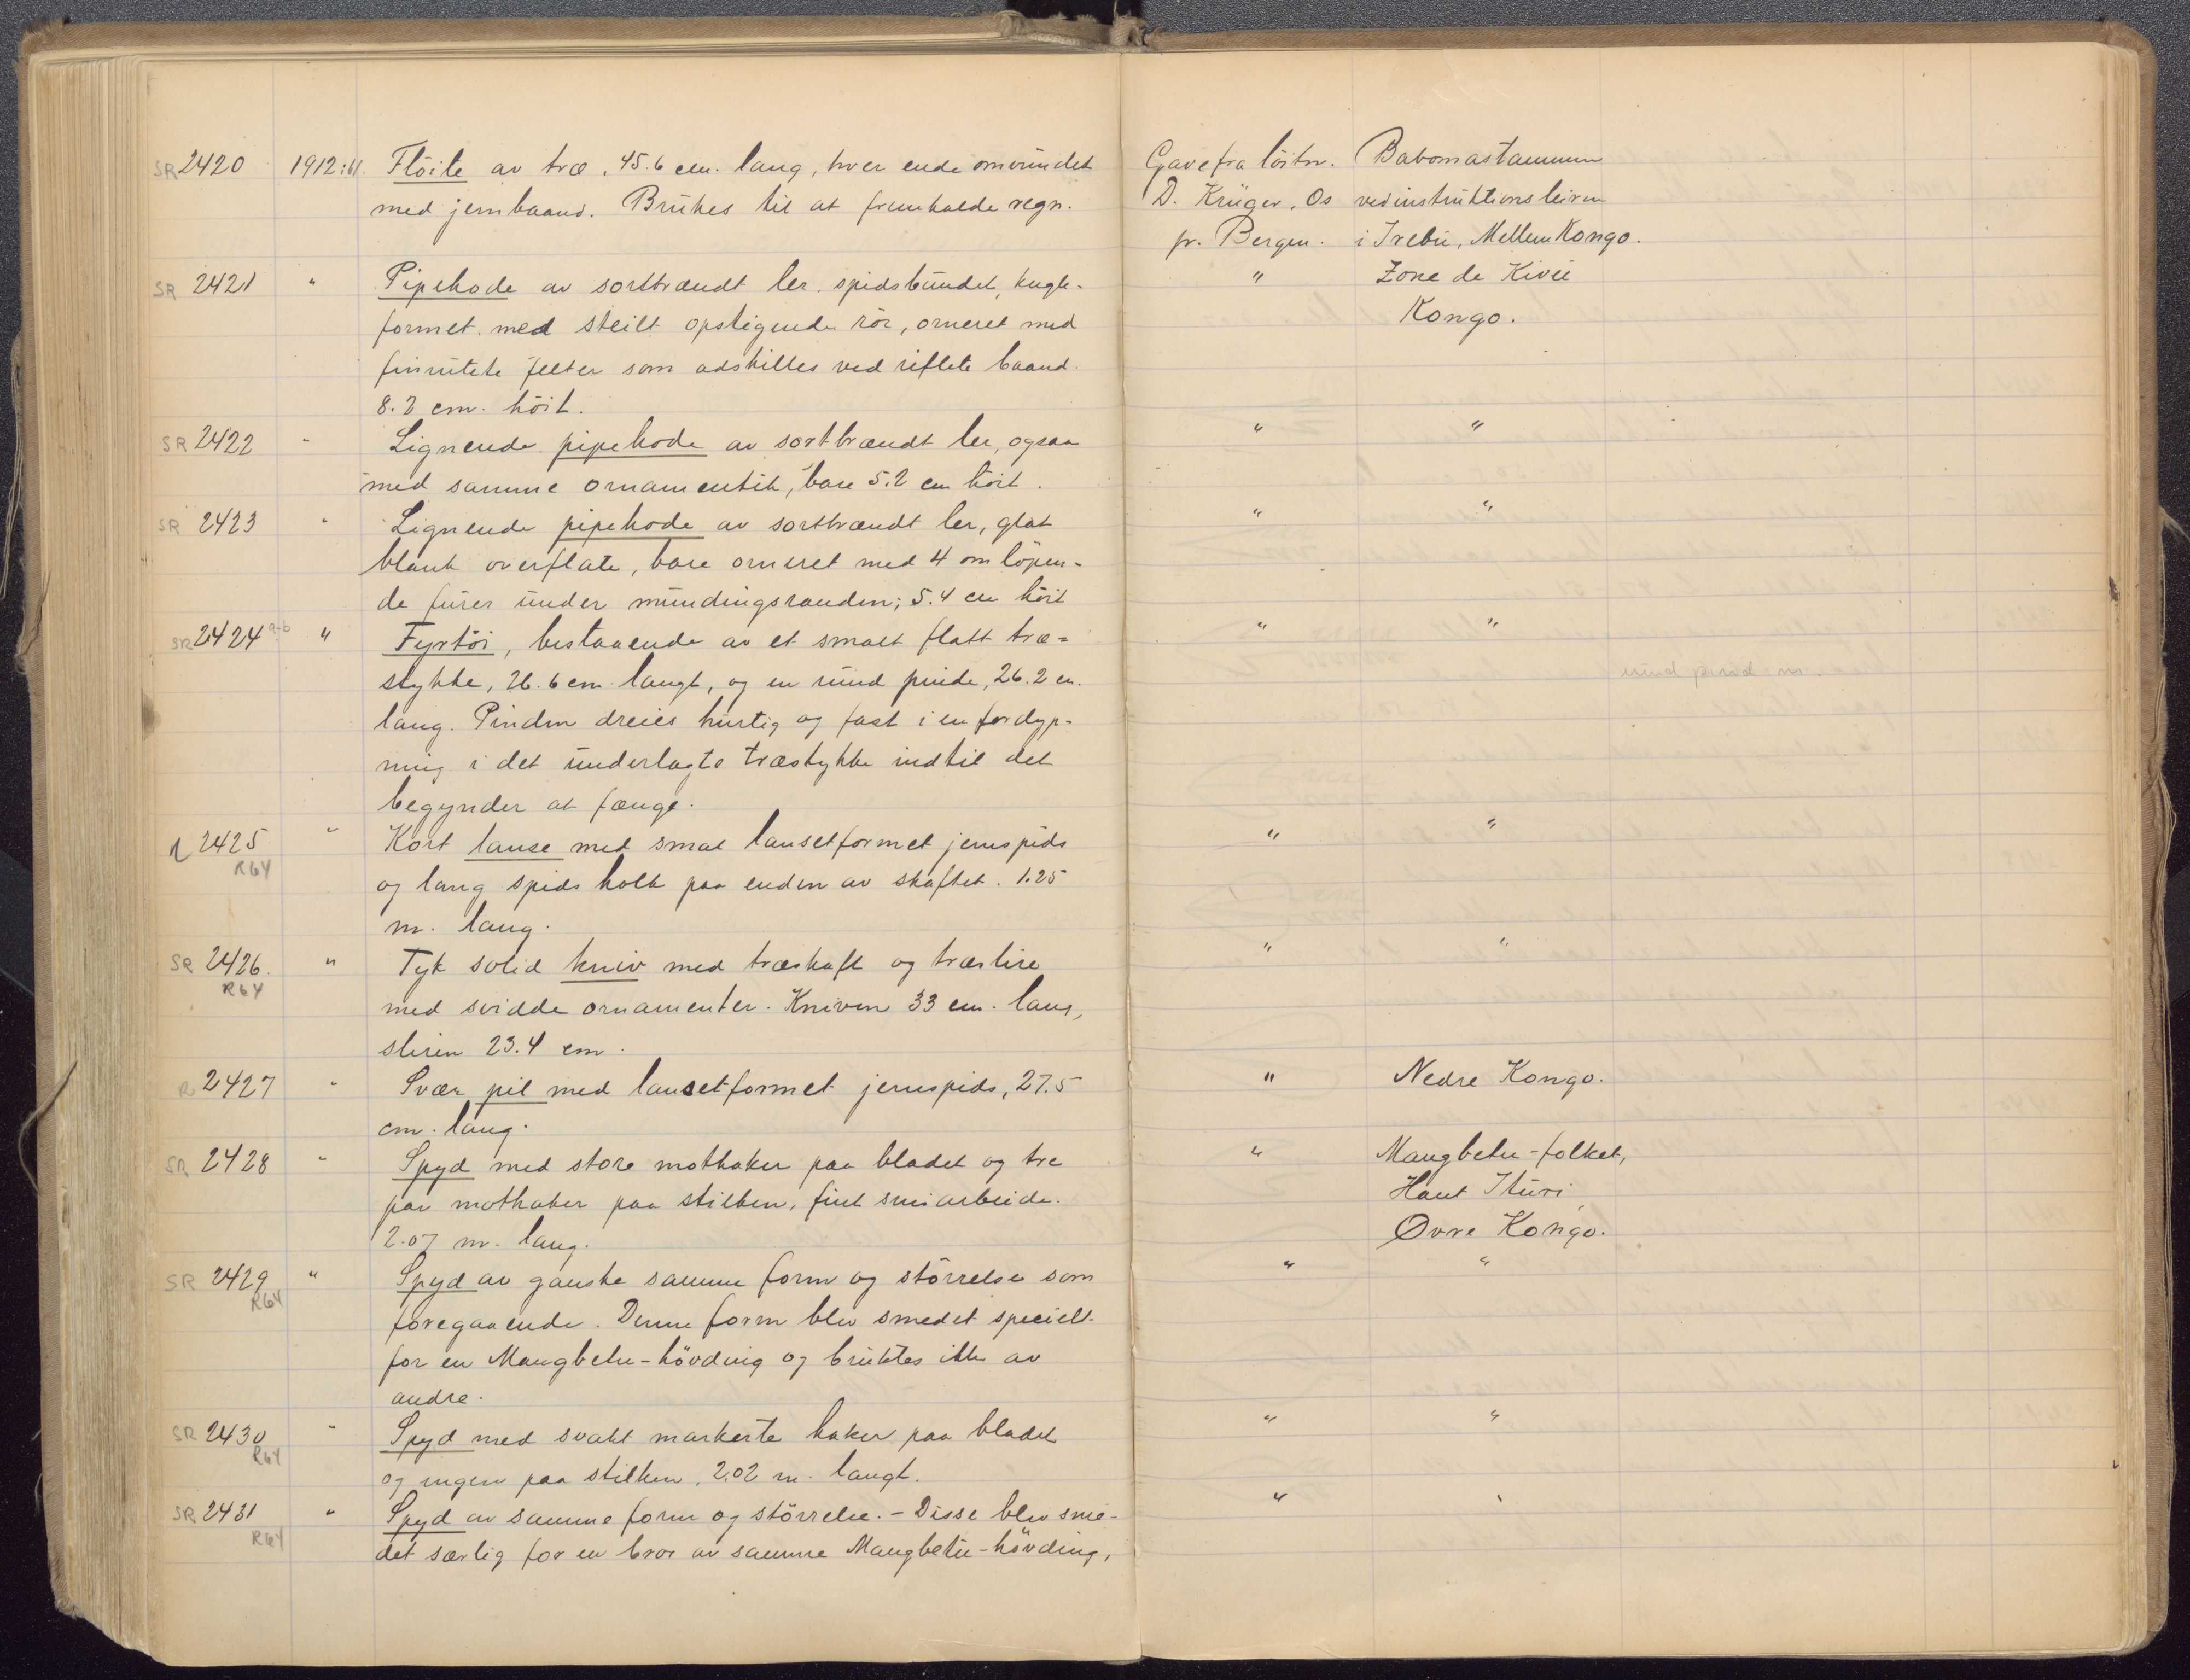 SR 2420 1912:61. Flöite av træ, 45.6 cm. lang, hver ende omvundet Gave fra löitn. Babomastammen
med jernbaand. Brukes til at fremkalde regn. D. Krüger, Os ved instruktionsleiren
pr. Bergen. i Irebu, Mellem Kongo.
SR 2421 " Pipehode av sortbrændt ler, spidsbundet, kugle- " Zone de Kivu
formet, med steilt opstigende rör, orneret med Kongo.
finrutete felter som adskilles ved riflete baand.
8.2 cm. höit.
SR 2422 " Lignende pipehode av sortbrændt ler, ogsaa " "
med samme ornamentik, bare 5.2 cm höit.
SR 2423 " Lignende pipehode av sortbrændt ler, glat " "
blank overflate, bare orneret med 4 omlöpen-
de furer under mundingsranden; 5.4 cm höit
SR 2424 a-b " Fyrtöi, bestaaende av et smalt flatt træ- " "
stykke, 26.6 cm langt, og en rund pinde, 26.2 cm. rund pind m.
lang. Pinden dreies hurtig og fast i en fordyp-
ning i det underlagte træstykke indtil det
begynder at fænge.
2425 " Kort lanse med smal lansetformet jernspids " "
R64
og lang spids holk paa enden av skaftet. 1.25
m. lang.
SR 2426. " Tyk solid kniv med træskaft og træslire " "
R64
med svidde ornamenter. Kniven 33 cm. lang,
sliren 23.4 cm.
R 2427 " Svær pil med lancetformet jernspids, 27.5 " Nedre Kongo.
cm. lang.
SR 2428 " Spyd med store mothaker paa bladet og tre " Mangbetu-folket,
par mothaker paa stilken, fint smiarbeide. Haut Ituri,
2.07 m. lang. Øvre Kongo.
SR 2429 " Spyd av ganske samme form og störrelse som " "
R64
foregaaende. Denne form blev smedet specielt
for en Mangbetu-hövding og bruktes ikke av
andre.
SR 2430 " Spyd med svakt markerte haker paa bladet " "
R64
og ingen paa stilken, 2.02 m. langt.
SR 2431 " Spyd av samme form og störrelse. – Disse blev sme- " "
R64
det særlig for en bror av samme Mangbetu-hövding,